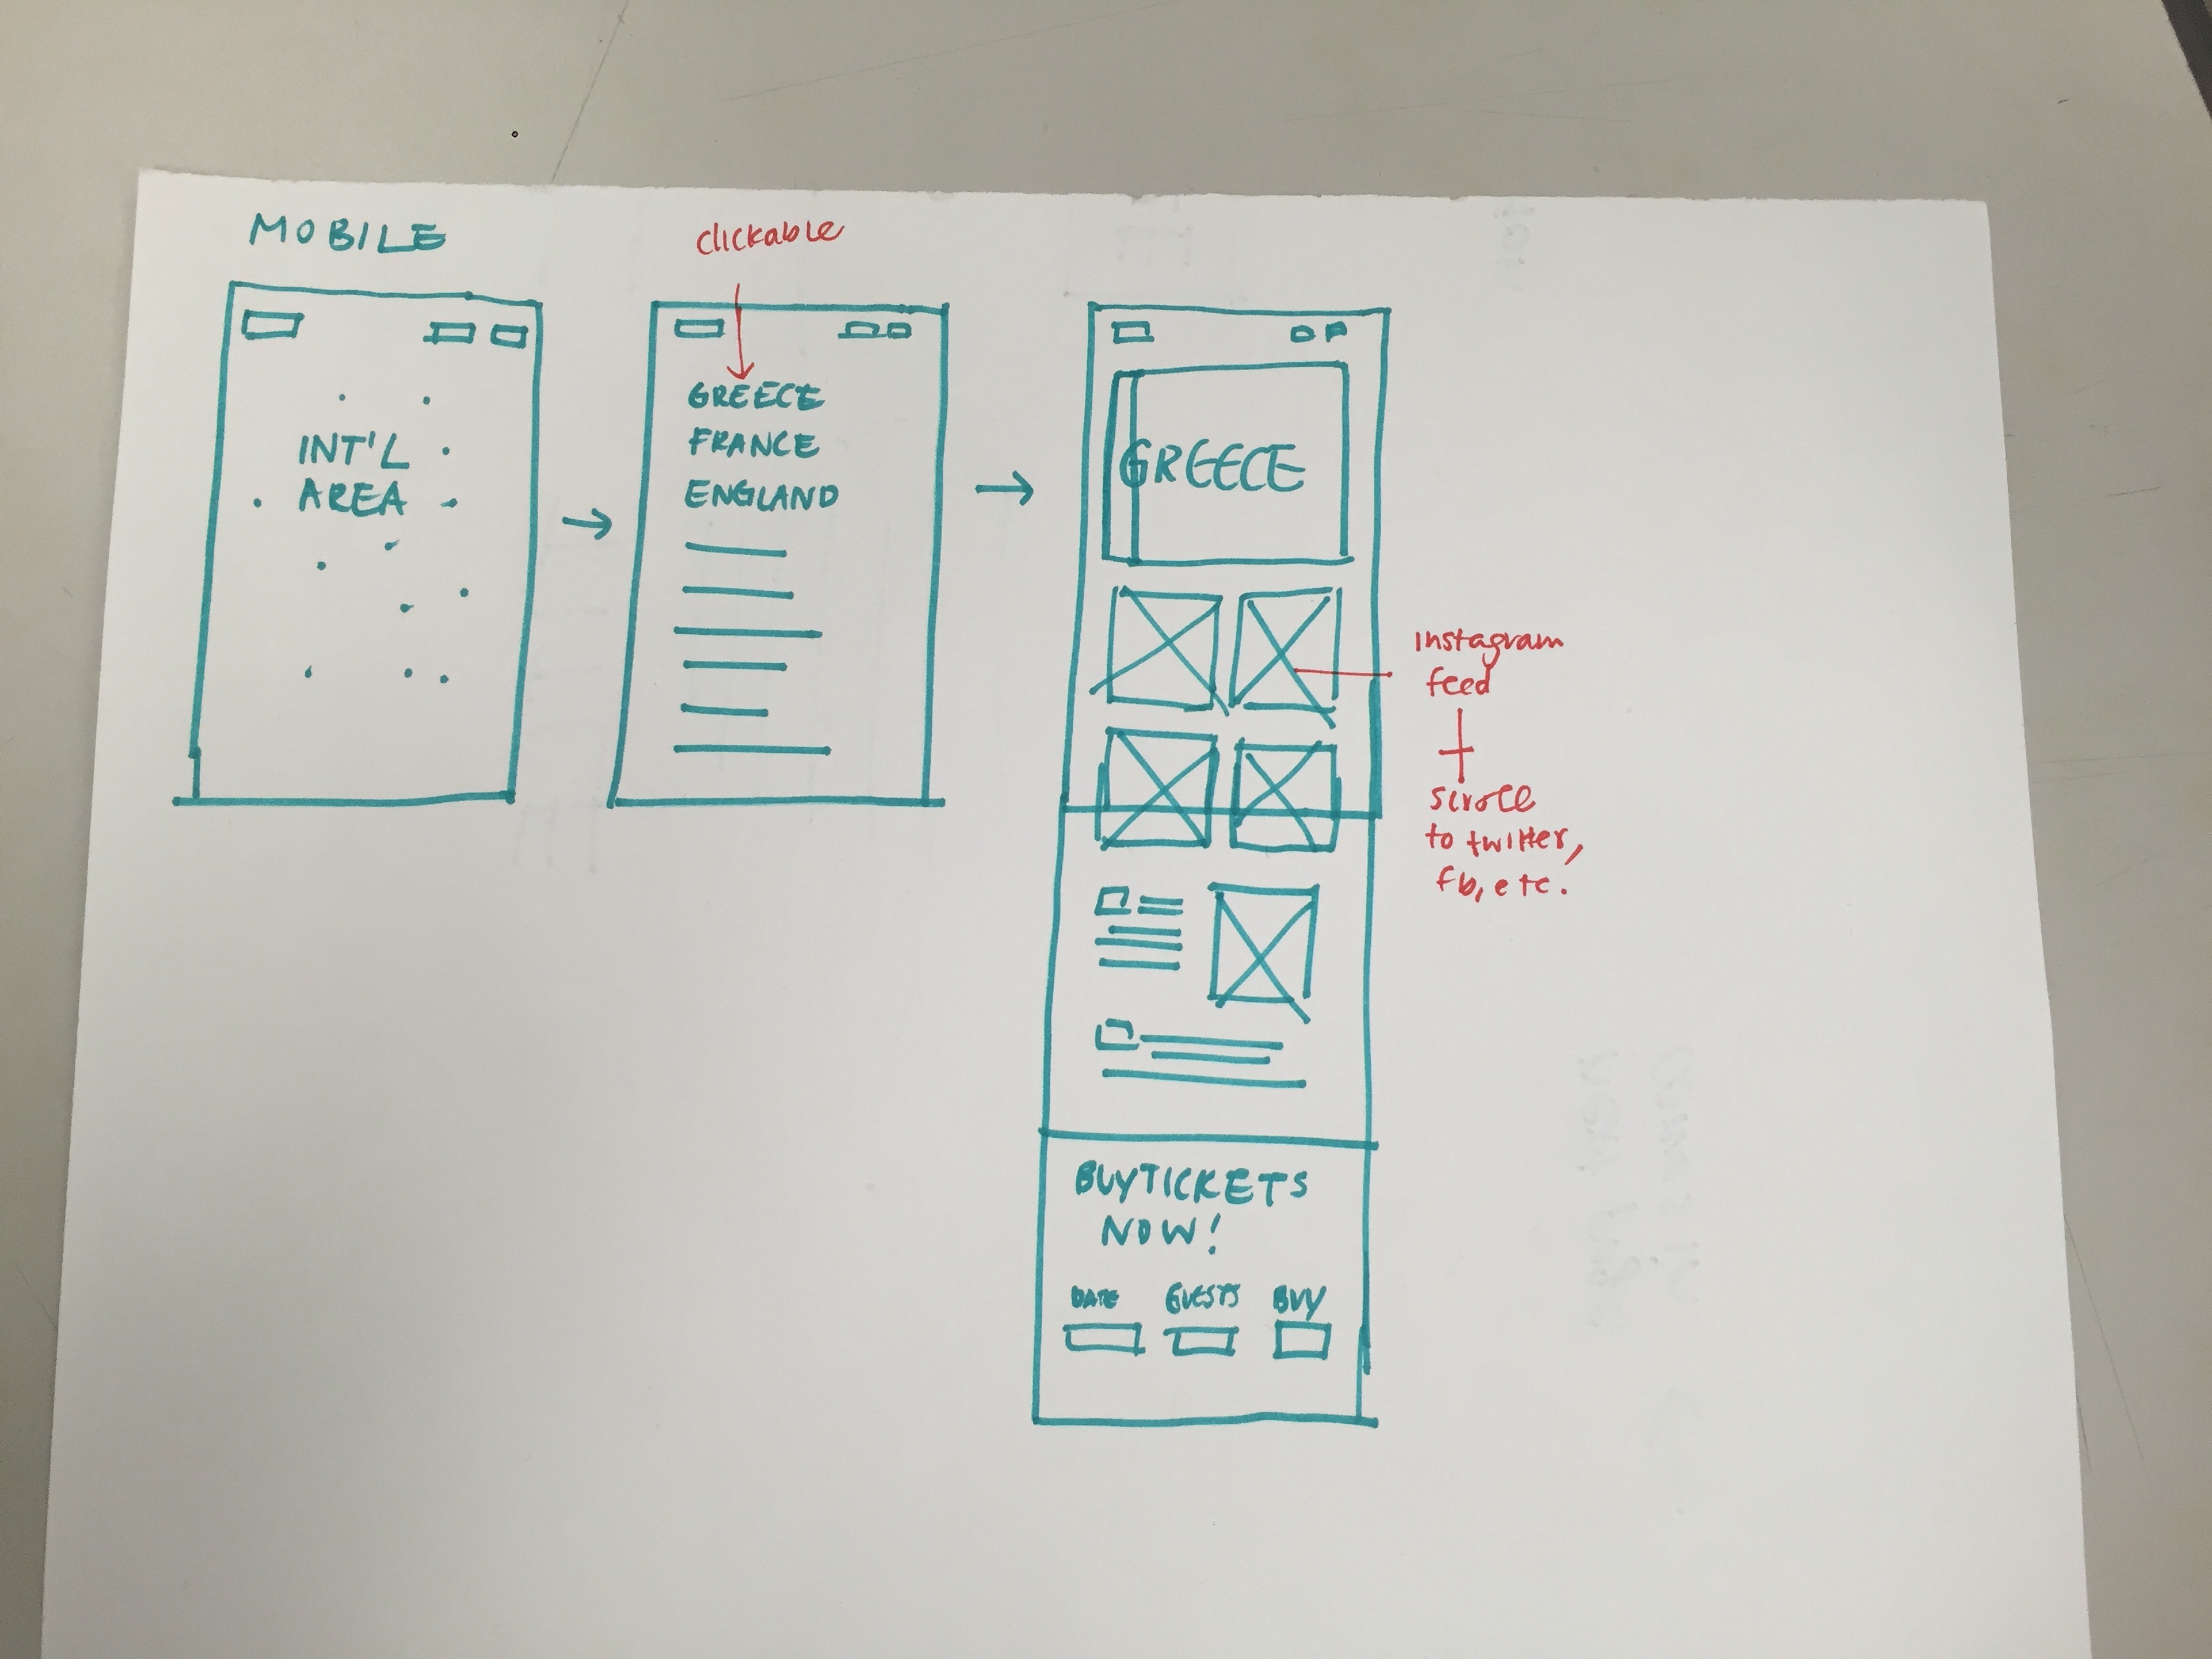 MOBILE
INT'L
AREA
clickable
GREECE
FRANCE
ENGLAND
GREECE
Instagram
feed
scroll
to twitter,
fb, etc.
BUY TICKETS
NOW!
DATE GUESTS BUY
next page
comes in